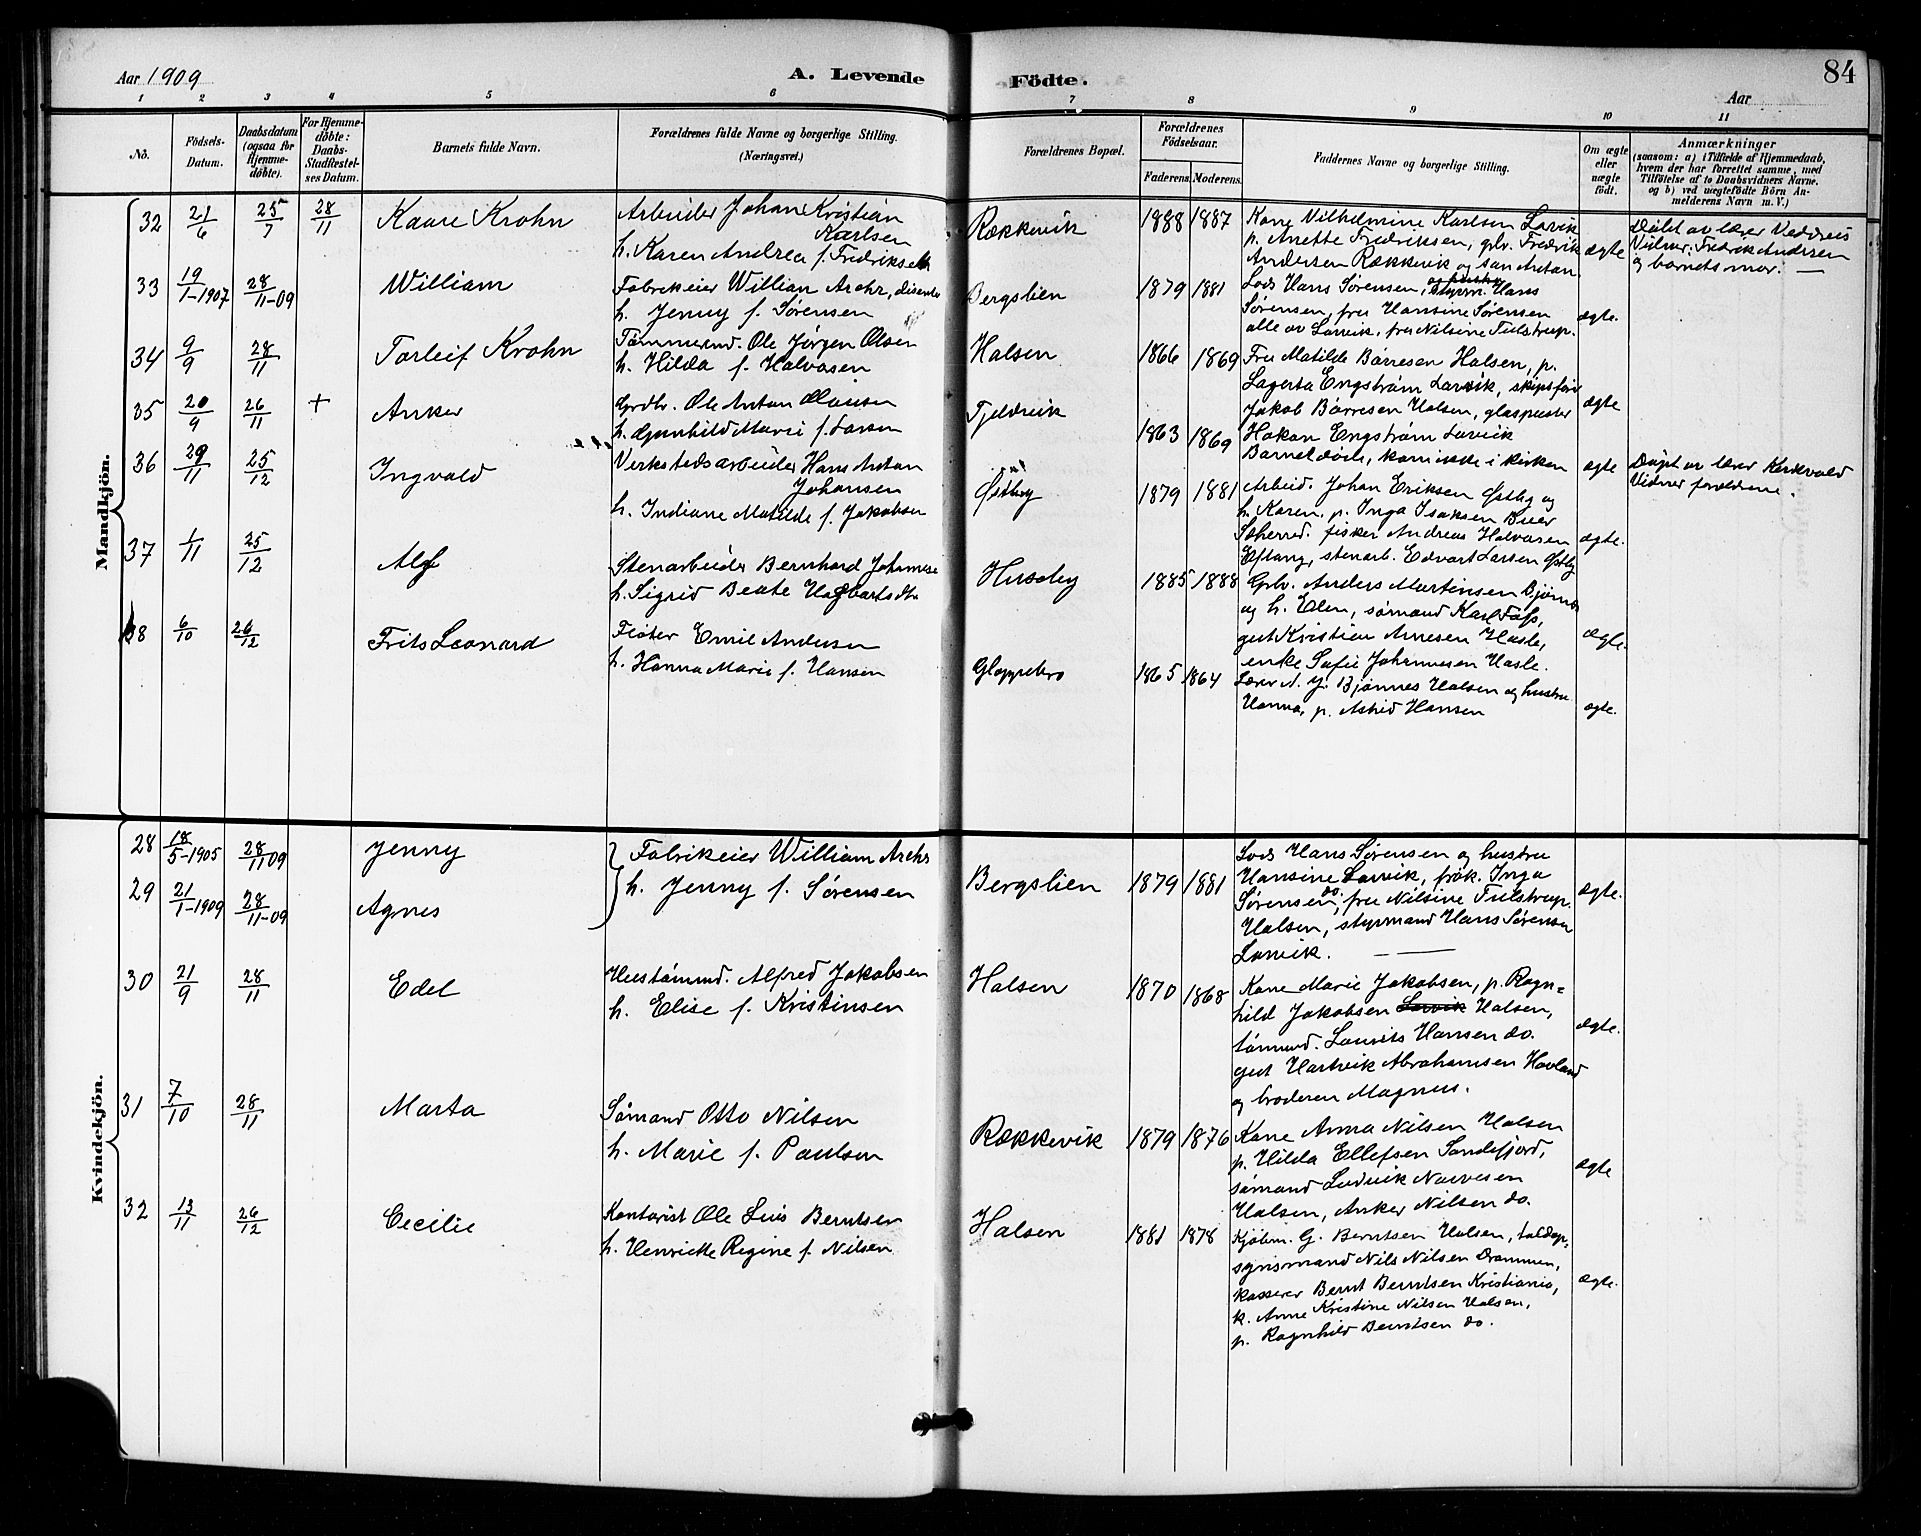 Aar 1909
A. Levende
Födte.
84
Aar
1 2 3 4 5 6 7 8 9 10 11
No.
Födsels-
Datum.
Daabsdatum
(ogsaa for
Hjemme-
døbte).
For Hjemme-
døbte:
Daabs-
Stadfæstel-
ses Datum.
Barnets fulde Navn.
Forældrenes fulde Navne og borgerlige Stilling.
(Næringsvei.)
Forældrenes Bopæl.
Forældrenes
Födselsaar.
Faderens. Moderens.
Faddernes Navne og borgerlige Stilling.
Om ægte
eller
uægte
födt.
Anmærkninger
(saasom: a) i Tilfælde af Hjemmedaab,
hvem der har forrettet samme, med
Tilföielse af to Daabsvidners Navne.
og b) ved uægtefödte Börn An-
melderens Navn m. V.)
Mandkjön.
32 21/6 25/7 28/11 Kaare Krohn
Arbeider Johan Kristian
Karlsen
h. Karen Andrea f. Fredriksen
Rækkevik 1888 1887
Kone Vilhelmine Karlsen Larvik
p. Anette Fredriksen, gbr. Fredrik
Andersen Rækkevik og søn Anton
ægte
Døbt av lærer
Vidner: Fredrik Andersen
og barnets mor. —
33 19/1-1907 28/11-09 William
Fabrikeier William Archr, disenter
h. Jenny f. Sørensen
Bergslien 1879 1881
Lods Hans Sørensen, Hans
Sørensen, fru Hansine Sørensen
alle av Larvik, fru Nilsine Tulstrup.
ægte.
34 9/9 28/11 Torleif Krohn
Tømmermd. Ole Jørgen Olsen
h. Hilda f. Halvorsen
Halsen 1866 1869
Fru Matilde Børresen Halsen, p.
Lagerta Engstrøm Larvik, skipsfør
Jakob Børresen Halsen, glaspuster
Hakon Engstrøm Larvik
ægte
35 20/9 26/11 + Anker
Grdbr. Ole Anton Olausen
h. Gunhild Marie f. Larsen
Tjeldvik 1863 1869
Barnet døde, kom ikke i kirken
ægte
Døpt av lærer
Vidner forældrene.
36 29/11 25/12 Ingvald
Verkstedsarbeider Hans Anton
Johansen
h. Indiane Matilde f. Jakobsen
Østby 1879 1881
Arbeid. Johan Eriksen Østby og
h. Karen, p. Inga Isaksen Buer
Søherred. fisker Andreas Halvorsen
Eftang, stenarb. Edvart Larsen Østby
ægte.
37 1/11 25/12 Alf
Stenarbeider Bernhard Johannesen
h. Sigrid Beate Hagbartsdtr.
Huseby 1885 1888
Gbr. Anders Martinsen Bjønnes
og h. Elen, sømand Karl Foss,
gut Kristian Arnesen Hasle,
enke Sofie Johannesen Hasle.
ægte.
38 6/10 26/12 Frits Leonard
Fløter Emil Andersen
h. Hanna Marie f. Hansen
Gloppebro 1865 1864
Lærer A. G. Bjønnes Halsen og hustru
Hanna, p. Astrid Hansen
ægte.
Kvindekjön.
28 18/5-1905 28/11 09 Jenny
29 21/1-1909 28/11-09 Agnes
Fabrikeier William Archr
h. Jenny f. Sørensen
Bergslien 1879 1881
Lods Hans Sørensen og hustru
Hansine Larvik, frøk. Inga
Sørensen do., fru Nilsine Tulstrup.
Halsen, styrmand Hans Sørensen
Larvik. —
ægte.
30 21/9 28/11 Edel
Hustømmd. Alfred Jakobsen
h. Elise f. Kristinsen
Halsen 1870 1868
Kone Marie Jakobsen, p. Ragn=
hild Jakobsen Larvik Halsen,
tømmd. Laurits Hansen do.
gut Hartvik Abrahamsen Hovland
og broderen Magnus.
ægte.
31 7/10 28/11 Marta
Sømand Otto Nilsen
h. Marie f. Paulsen
Rækkevik 1879 1876
Kone Anna Nilsen Halsen
p. Hilda Ellefsen Sandefjord,
sømand Ludvik Narvesen
Halsen, Anker Nilsen do.
ægte
32 13/11 26/12 Cecilie
Kontorist Ole Luis Berntsen
h. Henriette Regine f. Nilsen
Halsen 1881 1878
Kjøbm. G. Berntsen Halsen, toldop-
synsmand Nils Nilsen Drammen,
kasserer Bernt Berntsen Kristiania,
k. Anne Kristine Nilsen Halsen,
p. Ragnhild Berntsen do.
ægte.